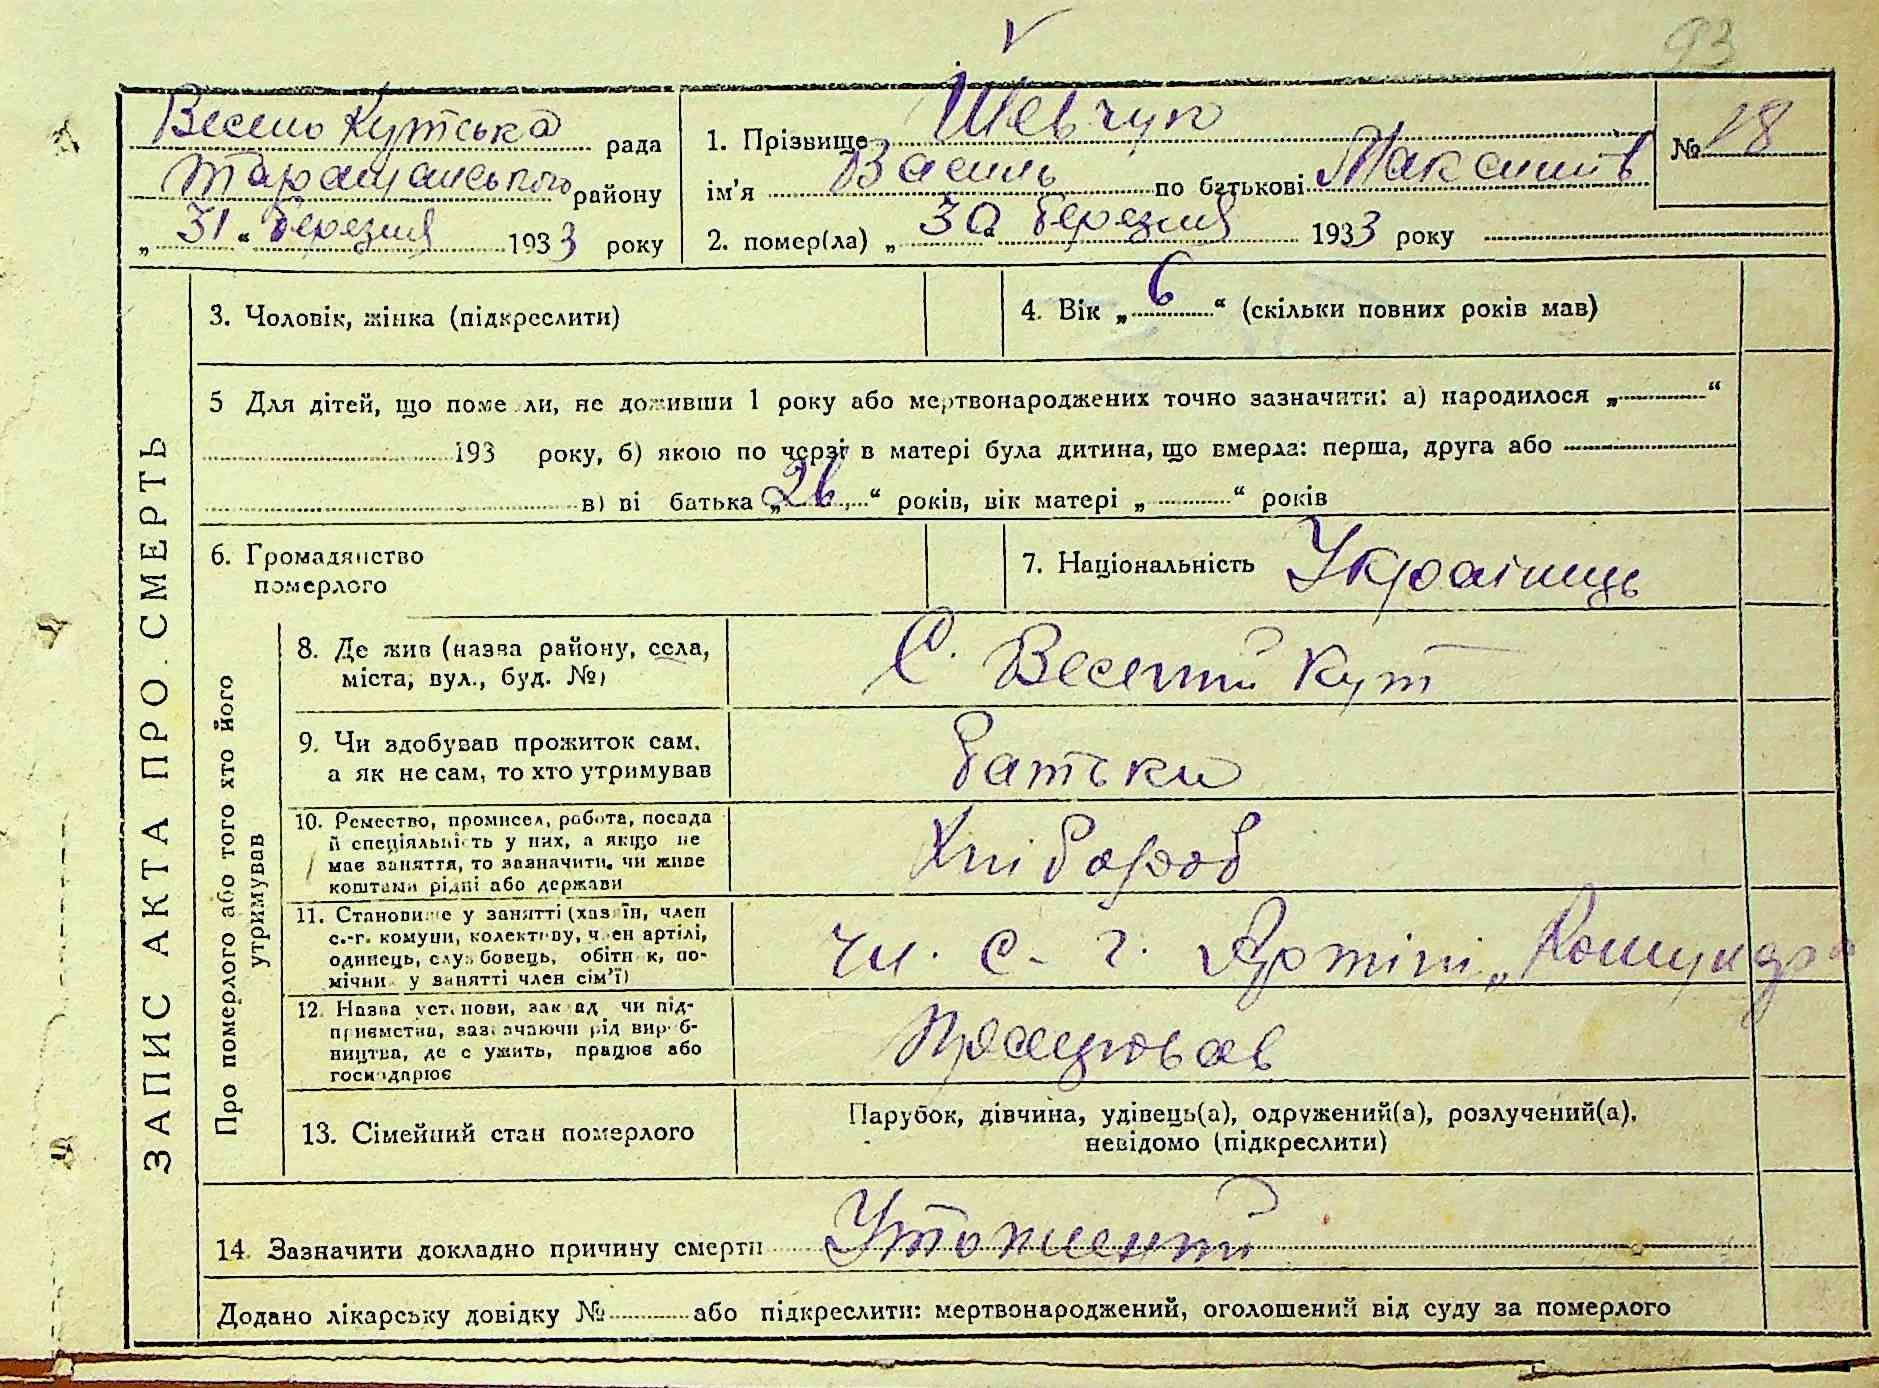 93
Весело Кутська рада
Таращанського району
„31“ березня 1933 року
1. Прізвище Шевчук
ім'я Василь по батькові Максимів
2. помер(ла) „30“ березня 1933 року
№ 18
ЗАПИС АКТА ПРО СМЕРТЬ
3. Чоловік, жінка (підкреслити)
4. Вік „6“ (скільки повних років мав)
5 Для дітей, що поме ли, не доживши 1 року або мертвонароджених точно зазначити: а) народилося „ “
193 року, б) якою по черзі в матері була дитина, що вмерла: перша, друга або
в) ві батька „26“ років, вік матері „ “ років
6. Громадянство
померлого
7. Національність Українець
Про померлого або того хто його
утримував
8. Де жив (назва району, села,
міста, вул., буд. №)
С. Веселий Кут
9. Чи здобував прожиток сам,
а як не сам, то хто утримував
батьки
10. Ремество, промисел, робота, посада
й спеціяльність у них, а якщо не
має заняття, то зазначити, чи живе
коштами рідні або держави
Хлібороб
11. Становище у занятті (хазяїн, член
с.-г. комуни, колективу, член артілі,
одинець, службовець, обітник, по-
мічник у занятті член сім'ї)
чл. с. г. Артілі „
12. Назва установи, заклад чи під-
приємства, зазначаючи рід вироб-
ництва, де служить, працює або
господарює
Працював
13. Сімейний стан померлого
Парубок, дівчина, удівець(а), одружений(а), розлучений(а),
невідомо (підкреслити)
14. Зазначити докладно причину смерти
Додано лікарську довідку № або підкреслити: мертвонароджений, оголошений від суду за померлого